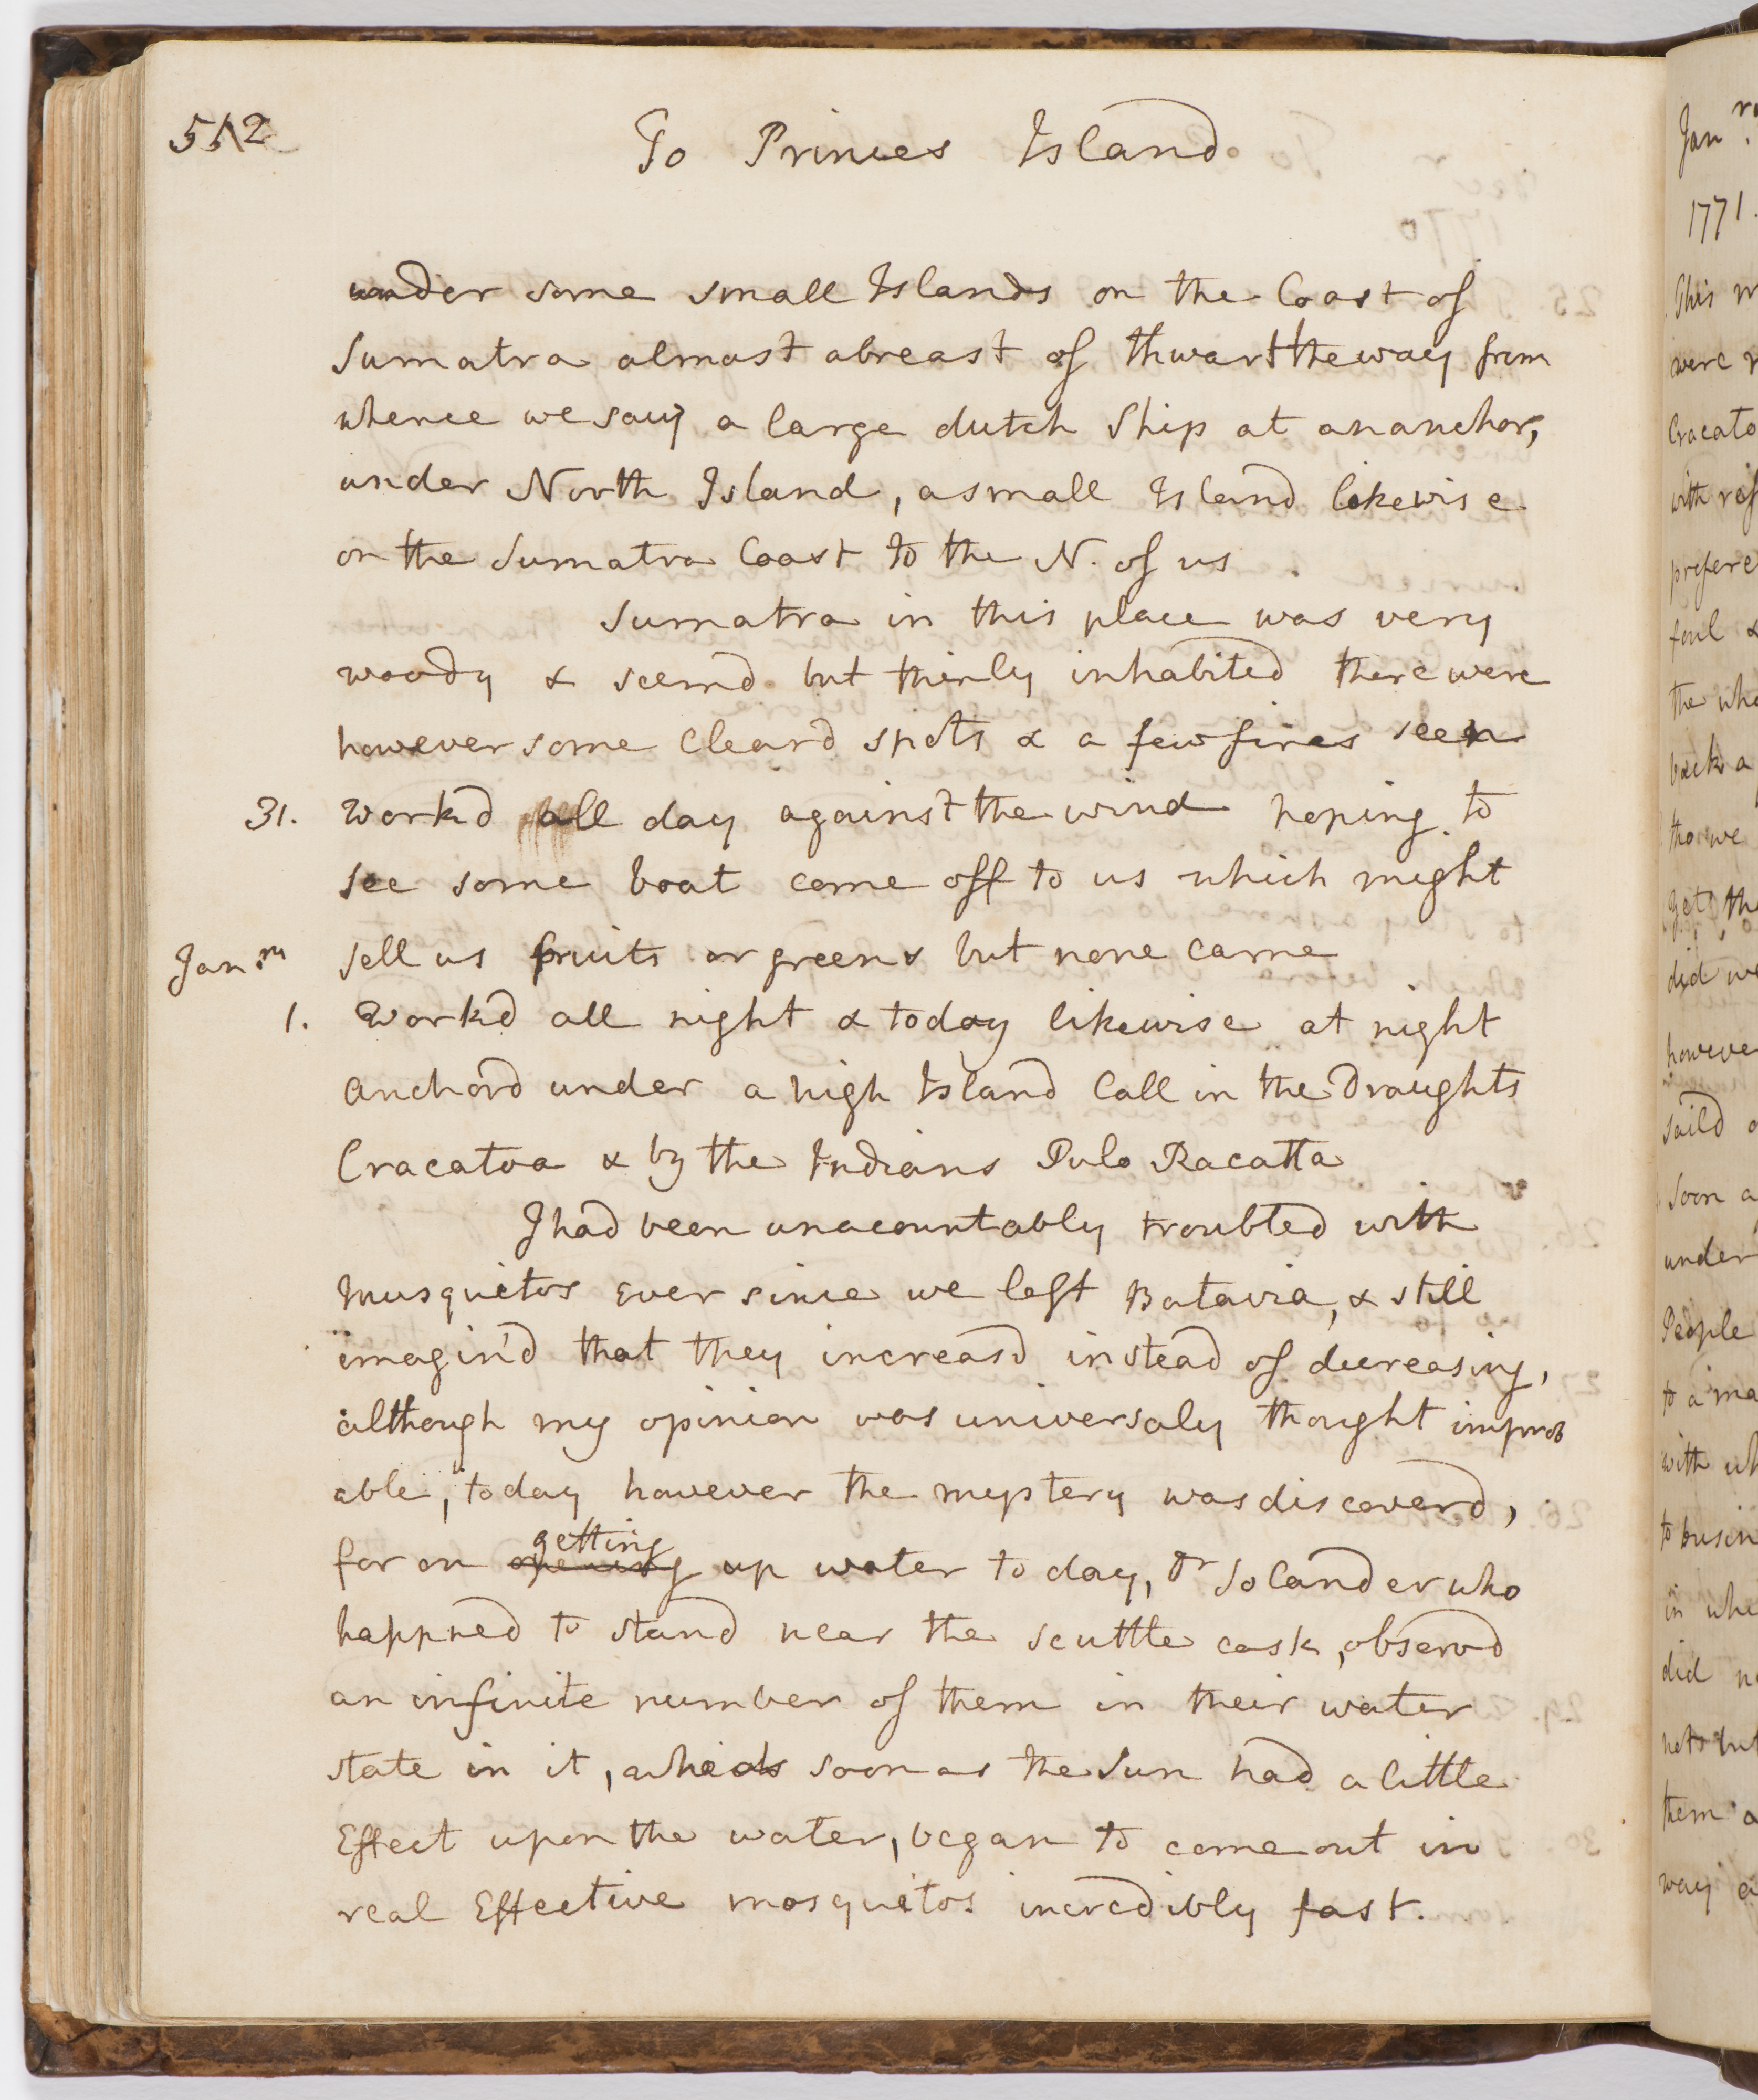 512
To Princes Island
under some small Islands on the Coast of
Sumatra almost abreast of thwart the way from
whence we saw a large dutch Ship at an anchor,
under North Island, a small Island likewise
on the Sumatra Coast to the N. of us
Sumatra in this place was very
woody & seemd but thinly inhabited there were
however some Cleard spots & a few fires seen
31. Workd all day against the wind hoping to
see some boat come off to us which might
Janry sell us fruits or greens but none came
1. Workd all night & today likewise at night
anchord under a high Island Call in the Draughts
Cracatoa & by the Indians Pulo Racatta
I had been unacountably troubled with
Musquitos Ever since we left Batavia, & still
imagin'd that they increasd instead of decreasing,
although my opinion was universaly thought improb
able, today however the mystery was discoverd,
getting
for on up water to day, Dr Solander who
happned to stand near the scuttle cask, observd
an infinite number of them in their water
state in it, who as soon as the Sun had a little
Effect upon the water, began to come out in
real Effective mosquitos incredibly fast.
Janry
1771.
This
were
Cracato
with
prefere
foul &
the who
back a
tho we
get the
did
howeve
saild
soon a
under
People
to a ma
with wh
to busin
in whi
did
them a
way